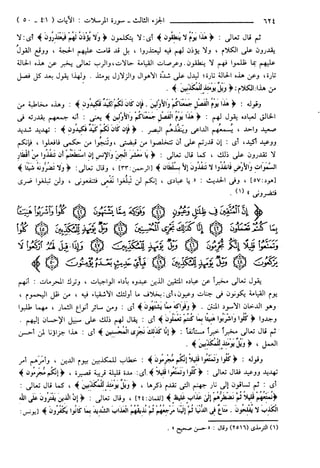 ٦٢٤ الجزء الثالث - سورة المرسلات: الآيات (٤١ - ٥٠)
ثم قال تعالى: ﴿ هذا يوم لا ينطقون ﴾ أي: لا يتكلمون ﴿ ولا يؤذن لهم فيعتذرون ﴾ أي: لا
يقدرون على الكلام، ولا يؤذن لهم فيه ليعتذروا، بل قد قامت عليهم الحجة، ووقع القول
عليهم بما ظلموا فهم لا ينطقون. وعرصات القيامة حالات، والرب تعالى يخبر عن هذه الحالة
تارة، وعن هذه الحالة تارة؛ ليدل على شدة الأهوال والزلازل يومئذ. ولهذا يقول بعد كل فصل
من هذا الكلام: ﴿ ويل يومئذ للمكذبين ﴾.
وقوله: ﴿ هذا يوم الفصل جمعناكم والأولين. فإن كان لكم كيد فكيدون ﴾: وهذه مخاطبة من
الخالق لعباده يقول لهم: ﴿ هذا يوم الفصل جمعناكم والأولين ﴾ يعني: أنه جمعهم بقدرته في
صعيد واحد، يسمعهم الداعي وينفذهم البصر. ﴿ فإن كان لكم كيد فكيدون ﴾: تهديد شديد
ووعيد أكيد، أي: إن قدرتم على أن تتخلصوا من قبضتي، وتنجوا من حكمي فافعلوا، فإنكم
لا تقدرون على ذلك، كما قال تعالى: ﴿ يا معشر الجن والإنس إن استطعتم أن تنفذوا من أقطار
السموات والأرض فانفذوا لا تنفذون إلا بسلطان ﴾ [الرحمن: ٣٣]، وقال تعالى: ﴿ ولا تضرونه شيئا ﴾
[هود: ٥٧]، وفي الحديث: « يا عبادي، إنكم لن تبلغوا نفعي فتنفعوني، ولن تبلغوا ضري
فتضروني » (١).
إن المتقين في ظلال وعيون وفواكه مما يشتهون كلوا واشربوا هنيئا
بما كنتم تعملون إنا كذلك نجزي المحسنين ويل يومئذ للمكذبين
كلوا وتمتعوا قليلا إنكم مجرمون ويل يومئذ للمكذبين وإذا قيل لهم
اركعوا لا يركعون ويل يومئذ للمكذبين فبأي حديث بعده يؤمنون
يقول تعالى مخبراً عن عباده المتقين الذين عبدوه بأداء الواجبات، وترك المحرمات: أنهم
يوم القيامة يكونون في جنات وعيون، أي: بخلاف ما أولئك الأشقياء فيه، من ظل اليحموم،
وهو الدخان الأسود المنتن. ﴿ وفواكه مما يشتهون ﴾ أي: ومن سائر أنواع الثمار، مهما طلبوا
وجدوا ﴿ كلوا واشربوا هنيئا بما كنتم تعملون ﴾ أي: يقال لهم ذلك على سبيل الإحسان إليهم.
ثم قال تعالى مخبراً خبراً مستأنفاً: ﴿ إنا كذلك نجزي المحسنين ﴾ أي: هذا جزاؤنا لمن أحسن
العمل، ﴿ ويل يومئذ للمكذبين ﴾.
وقوله: ﴿ كلوا وتمتعوا قليلا إنكم مجرمون ﴾: خطاب للمكذبين بيوم الدين، وأمرهم أمر
تهديد ووعيد فقال تعالى: ﴿ كلوا وتمتعوا قليلا ﴾ أي: مدة قليلة قريبة قصيرة، ﴿ إنكم مجرمون ﴾
أي: ثم تساقون إلى نار جهنم التي تقدم ذكرها، ﴿ ويل يومئذ للمكذبين ﴾، كما قال تعالى:
﴿ نمتعهم قليلا ثم نضطرهم إلى عذاب غليظ ﴾ [لقمان: ٢٤]، وقال تعالى: ﴿ إن الذين يفترون على الله
الكذب لا يفلحون. متاع في الدنيا ثم إلينا مرجعهم ثم نذيقهم العذاب الشديد بما كانوا يكفرون ﴾ [يونس:
(١) الترمذي (٢٥١٦) وقال: « حسن صحيح ».